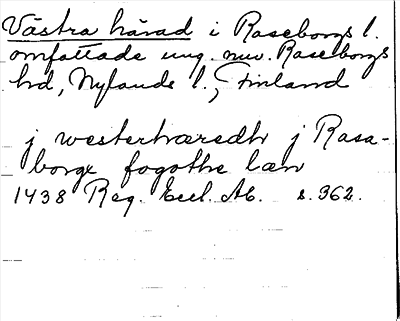 Västra härad i Raseborgs l.
omfattade ung. nuv. Raseborgs
hd, Nylands l., Finland
j westerhæredh j Rasa-
borgx fogothe læn
1438 Reg. Eccl. Ab. s. 362.